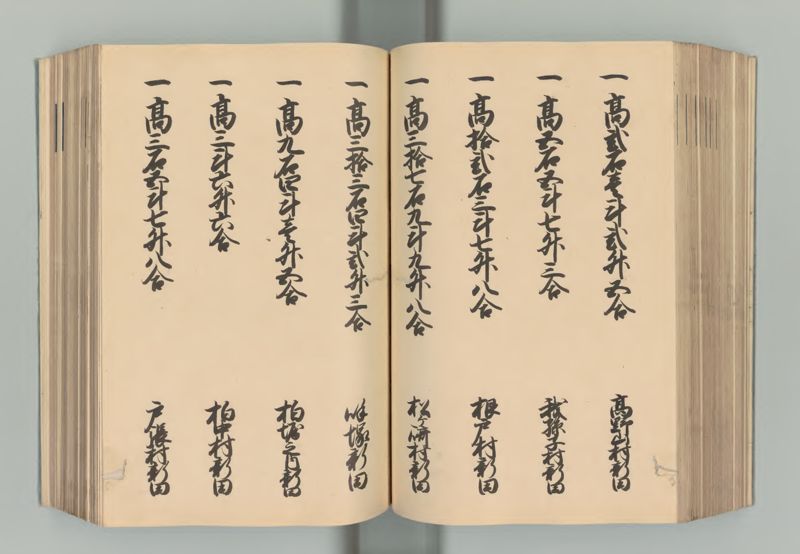 一高弐石壱斗弐升五合 高野山村新田
一高五石五斗七升三合 我孫子村新田
一高拾弐石三斗七升八合 根戸村新田
一高三拾七石九斗九升八合 松ヶ崎村新田
一高三拾三石四斗弐升三合 呼塚新田
一高九石四斗壱升五合 柏堀之内新田
一高三斗六升六合 柏中村新田
一高三石五斗七升八合 戸張村新田